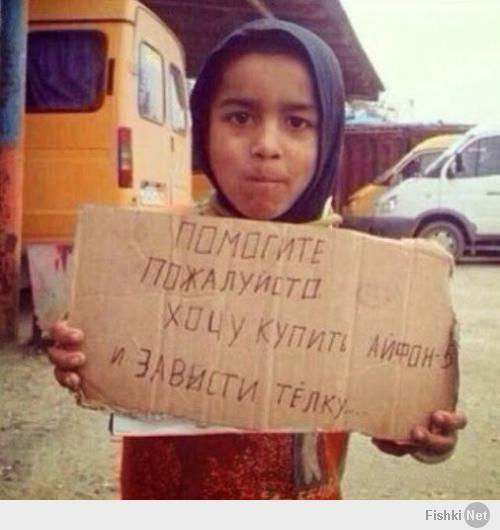 ПОМОГИТЕ
ПОЖАЛУЙСТО
ХОЦУ КУПИТЬ АЙФОН-5
И ЗАВЫСТИ ТЁЛКУ....
Fishki Net